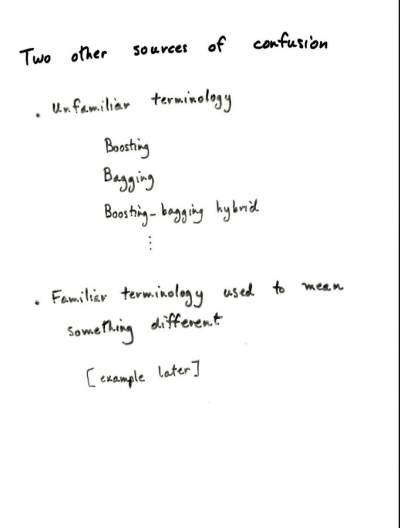 Two other sources of confusion
• Unfamiliar terminology
Boosting
Bagging
Boosting-bagging hybrid
⋮
• Familiar terminology used to mean
something different
[example later]